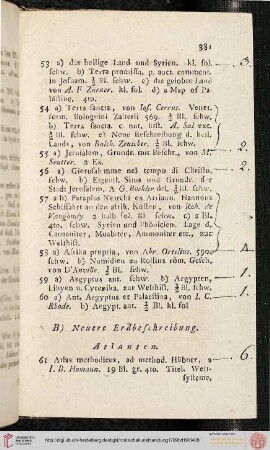 381
53 a) das heilige Land und Syrien. kl. fol.
schw. b) Terra promissa, p. auct. comment.
in Josuam. ½ Bl. schw. c) das gelobte Land
von A. F. Zürner. kl. fol. d) a Map of Pa-
lästine. 4to.
3
54 a) Terra sancta, von Jos. Cerrue. Venet.
form. Bolognini Zalterii 569. ½ Bl. schw.
b) Terra sancta. c. not. hist. A. Sal exc.
½ Bl. schw. c) Neue Beschreibung d. heil.
Lands, von Balth. Zenicher. ½ Bl. schw.
2
55 a) Jerusalem, Grundr. mit Beschr., von M.
Seutter. 2 Ex.
2
56 a) Gierosalemme nel tempo di Christo.
schw. b) Eigentl. Situs und Grundr. der
Stadt Jerusalem. A. G. Böckler del. ½ Bl. schw.
57 a) b) Paraplus Nearchi ex Arriano. Hannons
Schifffahrt an den afrik. Küsten, von Rob. de
Vaugondy. 2 halb fol. Bl. schw. c) 2 Bl.
4to. schw. Syrien und Phönicien. Lage d.
Cananiter, Moabiter, Ammoniter etc., zur
Welthist.
4
58 a) Afrika propria, von Abr. Ortelius. 590.
schw. b) Numidien zu Rollins röm. Gesch.
von D'Anville. ½ Bl. schw.
1
59 a) Aegyptus ant. schw. b) Aegypten,
Libyen u. Cyrenika. zur Welthist. ½ Bl. schw.
1
60 a) Ant. Aegyptus et Palaestina, von I. C.
Rhode. b) Aegypt. ant. ½ Bl. kl. fol.
B) Neuere Erdbeschreibung.
Atlanten.
61 Atlas methodicus, ad method. Hübner, a
I. B. Homann. 19 Bl. gr. 4to. Titel. Welt-
systeme,
6